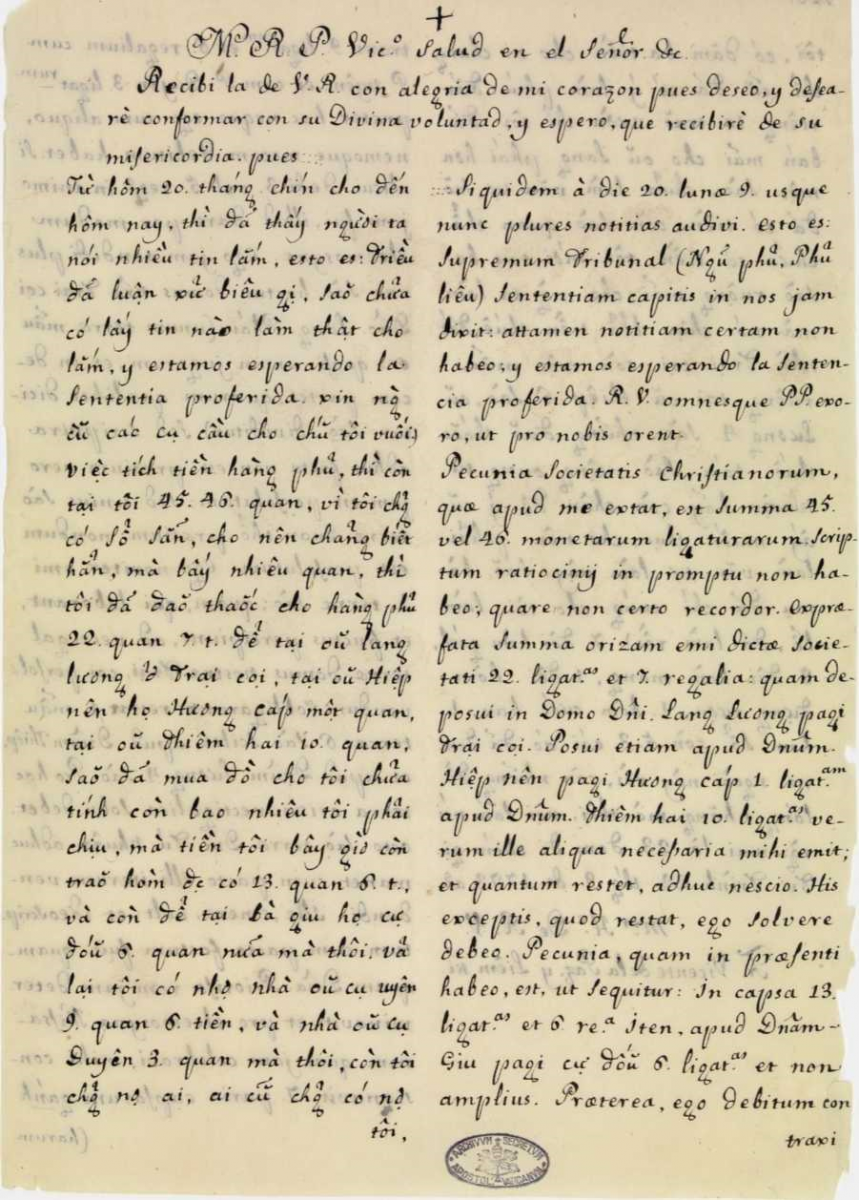 +
M. R. P. Vic.º Salud en el Señor &c.
Recibi la de V. R. con alegria de mi corazon pues deseo, y desea-
rè conformar con su Divina voluntad, y espero, que recibirè de su
misericordia. pues
Từ hôm 20. tháng chín cho đến
hôm nay, thì đã thấy ngƣời ta
nói nhiều tin lắm, esto es: triều
đã luận xử biêu gị, saõ chửa
có lấy tin nào làm thật cho
lắm, y estamos esperando la
sententia proferida. xin ng̉
cũ các cụ cầu cho chú tôi vuối,
việc tích tiền hàng phủ, thì còn
tại tôi 45. 46. quan, vì tôi chg̉
có sổ sẵn, cho nên chẳng biết
hẳn, mà bấy nhiêu quan, thì
tôi đã đaõ thaốc cho hàng phủ
22. quan 7 t. để tại oũ lang
lương ở trại cọi, tại oũ Hiệp
nên họ Hương cáp một quan,
tại oũ thiêm hai 10. quan,
saõ đã mua đồ cho tôi chửa
tính còn bao nhiêu tôi phải
chịu, mà tiền tôi bây giờ còn
traõ hòm &c có 13. quan 6. t.,
và còn để tại bà giu họ cự
đoũ 6. quan nữa mà thôi. và
lại tôi có nhợ nhà oũ cụ uyên
9. quan 6. tiền, và nhà oũ cụ
Duyên 3. quan mà thôi, còn tôi
chg̉ nợ ai, ai cũ chg̉ có nợ
tôi,
Siquidem à die 20. lunæ 9. usque
nunc plures notitias audivi. esto es:
Supremum Tribunal (Ngũ phủ, Phủ
liêu) sententiam capitis in nos jam
dixit: attamen notitiam certam non
habeo, y estamos esperando la senten-
cia proferida. R. V. omnesque PP. exo-
ro, ut pro nobis orent.
Pecunia societatis Christianorum,
quæ apud me extat, est summa 45.
vel 46. monetarum ligaturarum. scrip-
tum ratiocinij in promptu non ha-
beo, quare non certo recordor. expræ-
fata summa orizam emi dictæ socie-
tati 22. ligat.as et 7. regalia: quam de-
posui in Domo Dñi. Lang Lương pagi
trại cọi. Posui etiam apud Dnũm.
Hiệp nên pagi Hương cáp 1. ligat.am
apud Dnũm. thiêm hai 10. ligat.as ve-
rum ille aliqua necessaria mihi emit;
et quantum restet, adhuc nescio. His
exceptis, quod restat, ego solvere
debeo. Pecunia, quam in præsenti
habeo, est, ut sequitur: In capsa 13.
ligat.as et 6. re.a Iten, apud Dnãm-
Giu pagi cự đoũ 6. ligat.as et non
amplius. Præterea, ego debitum con
traxi
ARCHIVVM SECRETVM
APOSTOL. VATICANVM